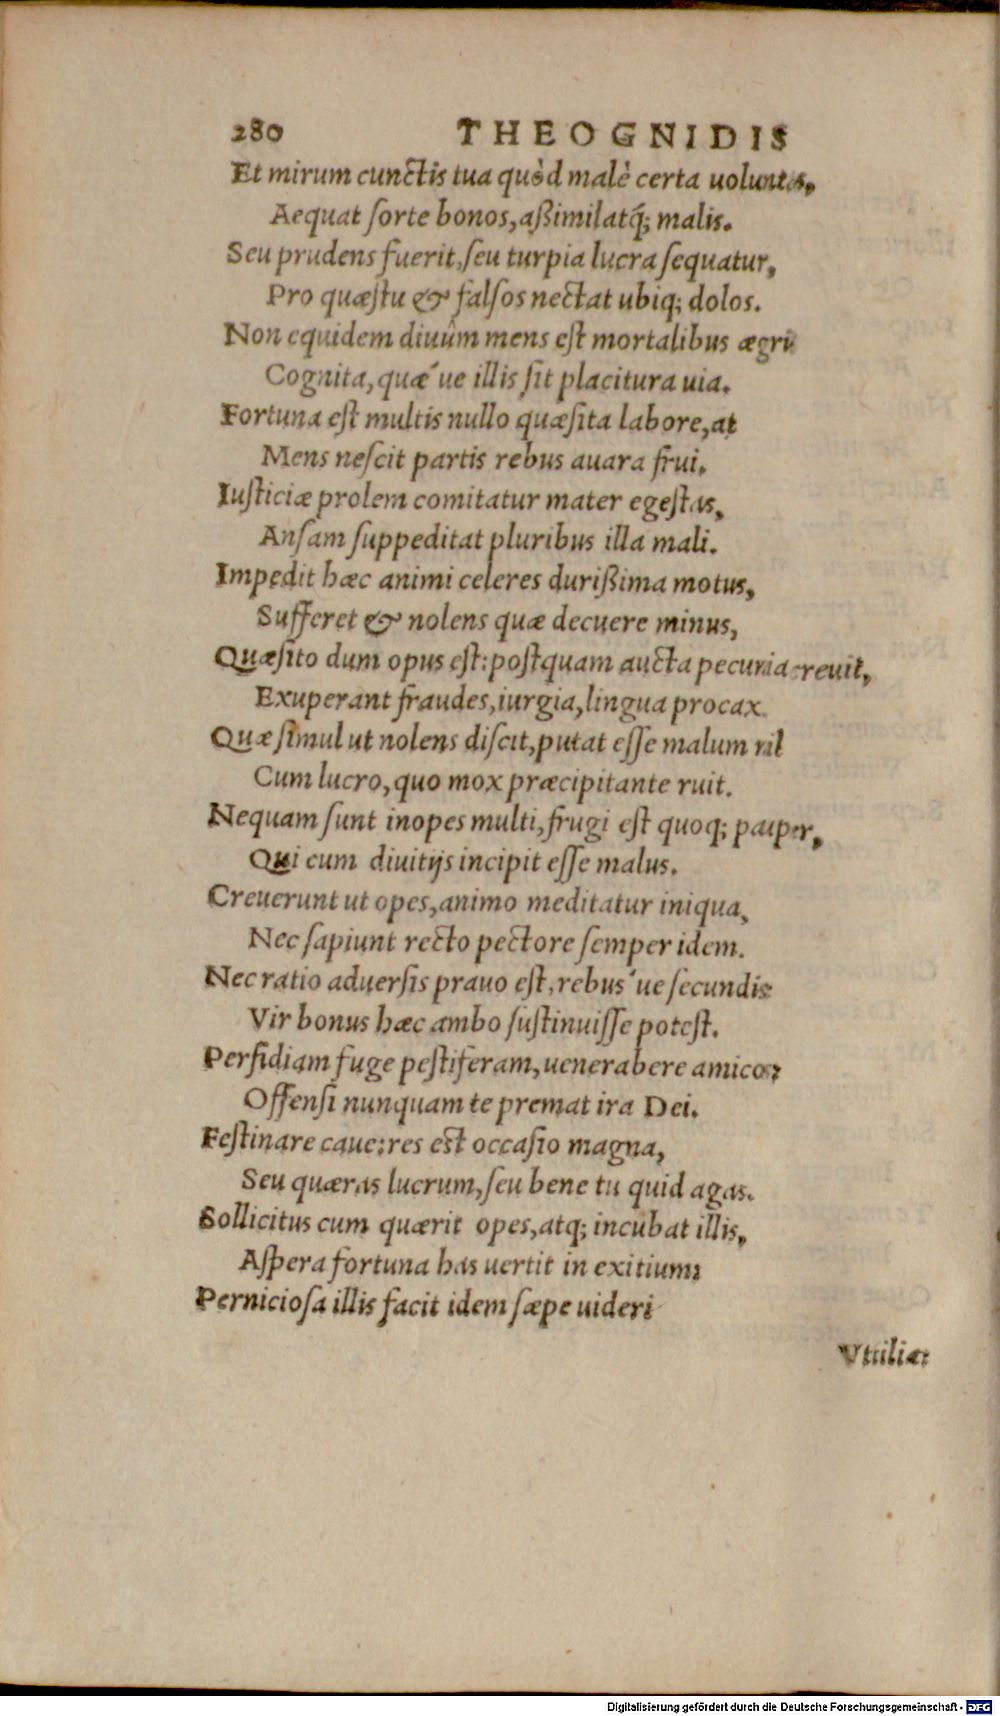 280 THEOGNIDIS
Et mirum cunctis tua quòd malè certa uoluntas,
Aequat ſorte bonos, aßimilatq́; malis.
Seu prudens fuerit, ſeu turpia lucra ſequatur,
Pro quæſtu & falſos nectat ubiq; dolos.
Non equidem diuûm mens eſt mortalibus ægris
Cognita, quæ´ue illis ſit placitura uia.
Fortuna eſt multis nullo quæſita labore, at
Mens neſcit partis rebus auara frui.
Iuſticiæ prolem comitatur mater egeſtas,
Anſam ſuppeditat pluribus illa mali.
Impedit hæc animi celeres durißima motus,
Sufferet & nolens quæ decuere minus,
Quæſito dum opus eſt: poſtquam aucta pecunia creuit,
Exuperant fraudes, iurgia, lingua procax.
Quæ ſimul ut nolens diſcit, putat eſſe malum nil
Cum lucro, quo mox præcipitante ruit.
Nequam ſunt inopes multi, frugi eſt quoq; pauper,
Qui cum diuitijs incipit eſſe malus.
Creuerunt ut opes, animo meditatur iniqua,
Nec ſapiunt recto pectore ſemper idem.
Nec ratio aduerſis prauo eſt, rebus´ue ſecundis
Vir bonus hæc ambo ſuſtinuiſſe poteſt.
Perfidiam fuge peſtiferam, uenerabere amicos
Offenſi nunquam te premat ira Dei.
Feſtinare caue: res eſt occaſio magna,
Seu quæras lucrum, ſeu bene tu quid agas.
Sollicitus cum quærit opes, atq; incubat illis,
Aſpera fortuna has uertit in exitium:
Pernicioſa illis facit idem ſæpe uideri
Vtilia:
Digitalisierung gefördert durch die Deutsche Forschungsgemeinschaft - DFG